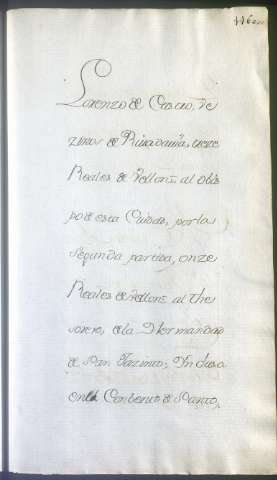 Lorenzo de Casao, Ve
zinos de Rivadavia, treze
Reales de Vellon: al obis
po de esta Ciudad, por la
Segunda partida, onze
Reales de vellon: al the
sorero, de la Hermandad
de San Jazinto, Inclusa
en el Conbento de Santo,